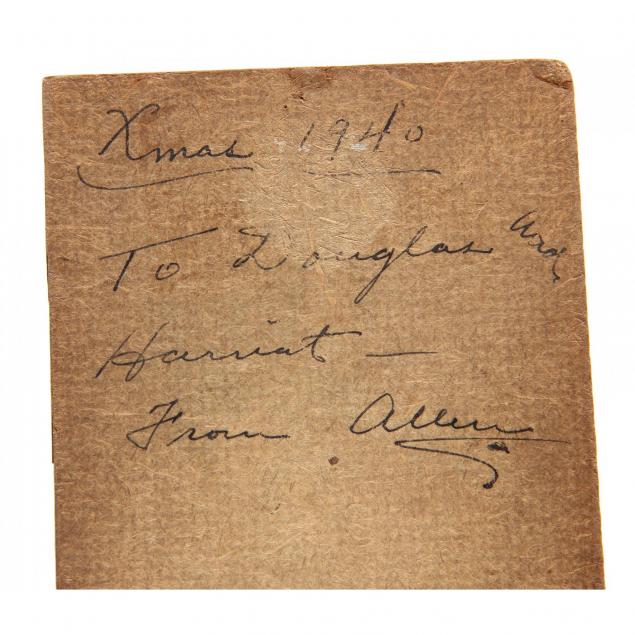 Xmas 1940
To Douglas and
Harriat —
From Allen